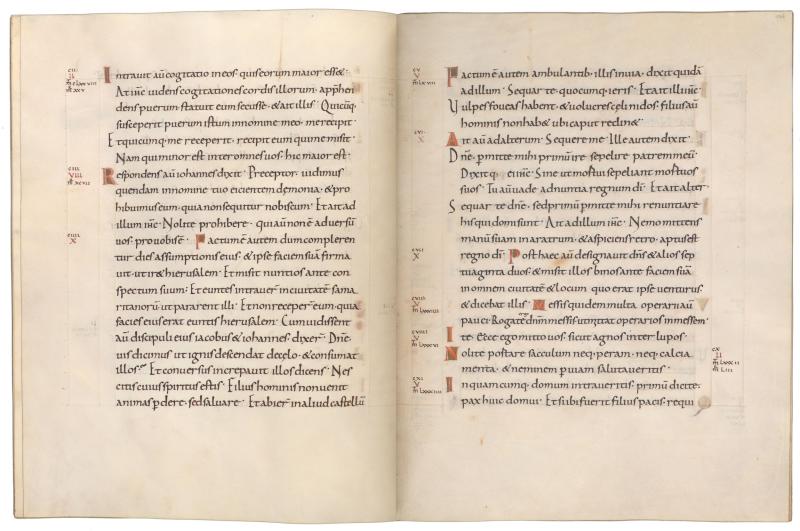 Intravit aū cogitatio in eos. quis eorum maior esset.
At ihc̄ videns cogitationes cordis illorum. appr̄hen
dens puerum statuit eum secus se. & ait illis. Quicūq.
susceperit puerum istum in nomine meo. me recipit.
Et quicumq. me receperit. recipit eum qui me misit.
Nam qui minor est inter omnes vos. hic maior est.
Respondens aū iohannes dixit. Preceptor. vidimus
quendam in nomine tuo eicientem demonia. & pro
hibuimus eum. quia non sequitur nobiscum. Et ait ad
illum ihc̄. Nolite prohibere. qui aū non ē adversū
vos. pro vobis ē. Factum ē autem dum compleren
tur dies assumptionis eius. & ipse faciem suā firma
vit. ut ir& hierusalem. Et misit nuntios ante con
spectum suum. Et euntes intraver̄ in civitatē sama
ritanorū. ut pararent illi. Et non receper̄ eum. quia
facies eius erat euntis hierusalem. Cum vidissent
aū discipuli eius iacobus & iohannes dixer̄. Dn̄e.
vis dicimus ut ignis descendat de cęlo. & consumat
illos. Et conversus increpavit illos dicens. Nes
citis cuius spiritus estis. Filius hominis non venit
animas p̄dere. sed salvare. Et abier̄ in aliud castellū
Factum ē autem ambulantib. illis in via. dixit quidā
ad illum. Sequar te. quocumq. ieris. Et ait illi ihc̄.
Vulpes foveas habent. & volucres cęli nidos. filius aū
hominis non hab& ubi caput reclin&.
Ait aū ad alterum. Sequere me. Ille autem dixit.
Dn̄e. p̄mitte mihi primū ire sepelire patrem meū.
Dixitq. ei ihc̄. Sine ut mortui sepeliant mortuos
suos. Tu aū vade adnuntia regnum dī. Et ait alter.
Sequar te dn̄e. sed primum p̄mitte mihi renuntiare
his qui domi sunt. Ait ad illum ihc̄. Nemo mittens
manū suam in aratrum. & aspiciens retro. aptus est
regno dī. Post haec aū designavit dn̄s & alios sep
tuaginta duos. & misit illos binos ante faciem suā
in omnem civitatē & locum quo erat ipse venturus.
& dicebat illis. Messis quidem multa. operarii aū
pauci. Rogate dn̄m messis ut mittat operarios in messem.
Ite. Ecce ego mitto vos. sicut agnos inter lupos.
Nolite portare sacculum neq. peram. neq. calcia
menta. & neminem p̄ viam salutaveritis.
In quamcumq. domum intraveritis. primū dicite.
pax huic domui. Et si ibi fuerit filius pacis. requi